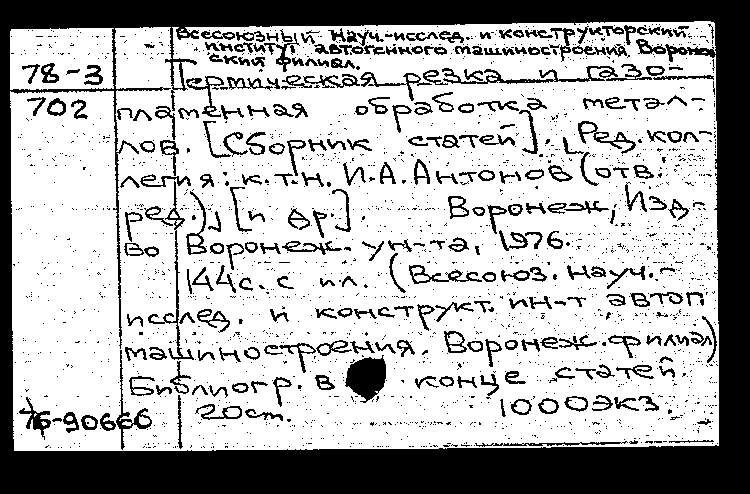 Всесоюзный науч.-исслед. и конструкторский
институт автогенного машиностроения Воронеж
ский филиал.
78-3 Термическая резка и газо-
702 пламенная обработка метал-
лов. [Сборник статей]. [Ред. кол-
легия: к.т.н. И.А. Антонов (отв.
ред.)] [и др.]. Воронеж, Изд-
во Воронеж. ун-та, 1976.
144с. с ил. (Всесоюз. науч.-
исслед. и конструкт. ин-т автоп
машиностроения. Воронеж. филиал)
Библиогр. в конце статей.
76-90666 20см. 1000экз.